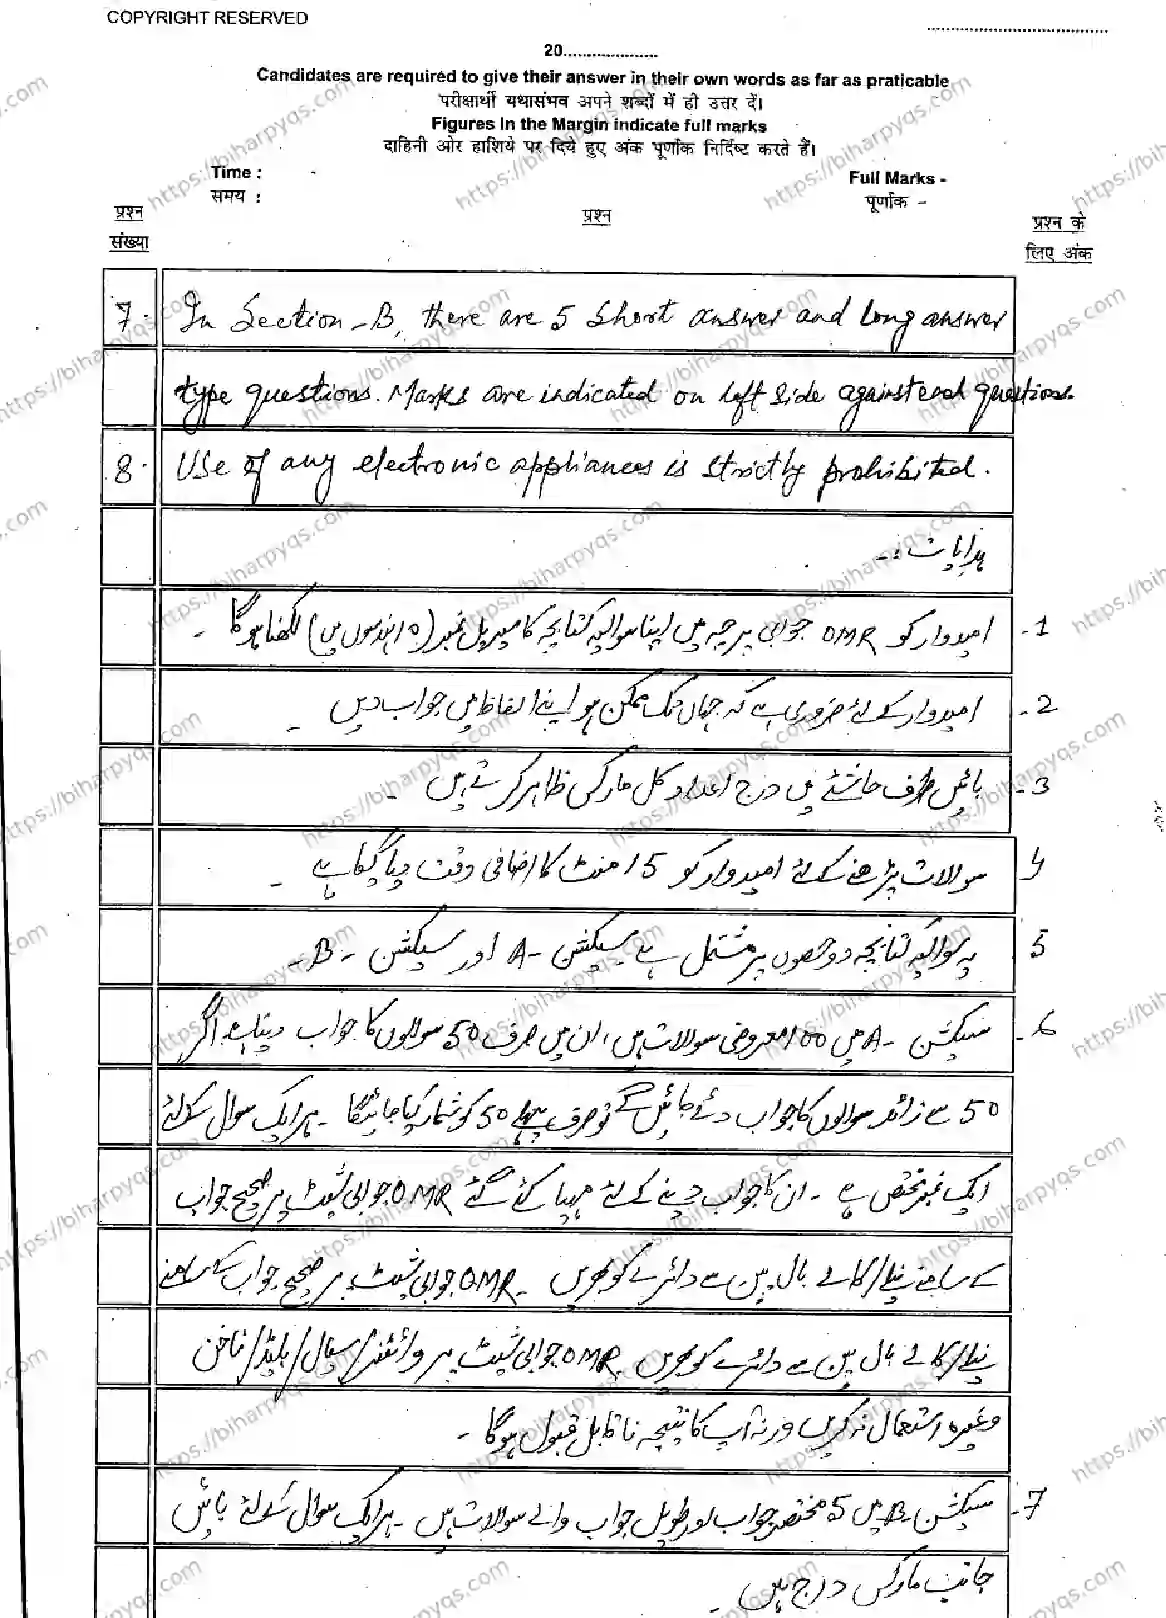 COPYRIGHT RESERVED
20
Candidates are required to give their answer in their own words as far as praticable
परीक्षार्थी यथासंभव अपने शब्दों में ही उत्तर दें।
Figures in the Margin indicate full marks
दाहिनी ओर हाशिये पर दिये हुए अंक पूर्णांक निर्दिष्ट करते हैं।
Time :
Full Marks -
समय :
पूर्णांक -
प्रश्न संख्या
प्रश्न
प्रश्न के लिए अंक
7. In Section-B, there are 5 Short answer and long answer
type questions. Marks are indicated on left side against each questions.
8. Use of any electronic appliances is strictly prohibited.
ہدایات :-
1- امیدوار کو OMR جوابی پرچہ میں اپنا سوالیہ کتابچہ کا سیریل نمبر (10 ہندسوں میں) لکھنا ہوگا -
2- امیدوار کے لئے ضروری ہے کہ جہاں تک ممکن ہو اپنے الفاظ میں جواب دیں -
3- بائیں طرف حاشئے میں درج اعداد کل مارکس ظاہر کرتے ہیں -
4 سوالات پڑھنے کے لئے امیدوار کو 15 منٹ کا اضافی وقت دیا گیا ہے -
5 یہ سوالیہ کتابچہ دو حصوں پر مشتمل ہے سیکشن -A اور سیکشن -B-
6- سیکشن -A میں 100 معروضی سوالات ہیں، ان میں صرف 50 سوالوں کا جواب دینا ہے اگر
50 سے زائد سوالوں کا جواب دئے جائیں گے تو صرف پہلے 50 کو شمار کیا جائیگا - ہر ایک سوال کے لئے
ایک نمبر مختص ہے - ان کا جواب دینے کے لئے مہیا کئے گئے OMR جوابی شیٹ پر صحیح جواب
کے سامنے نیلے/کالے بال پین سے دائرے کو بھریں - OMR جوابی شیٹ پر صحیح جواب کے سامنے
نیلے/کالے بال پین سے دائرے کو بھریں OMR جوابی شیٹ پر وائٹنر/سیال/بلیڈ/ناخن
وغیرہ استعمال نہ کریں ورنہ آپ کا نتیجہ ناقابل قبول ہوگا -
7- سیکشن -B میں 5 مختصر جواب اور طویل جواب والے سوالات ہیں - ہر ایک سوال کے لئے بائیں
جانب مارکس درج ہیں -
https://biharpyqs.com